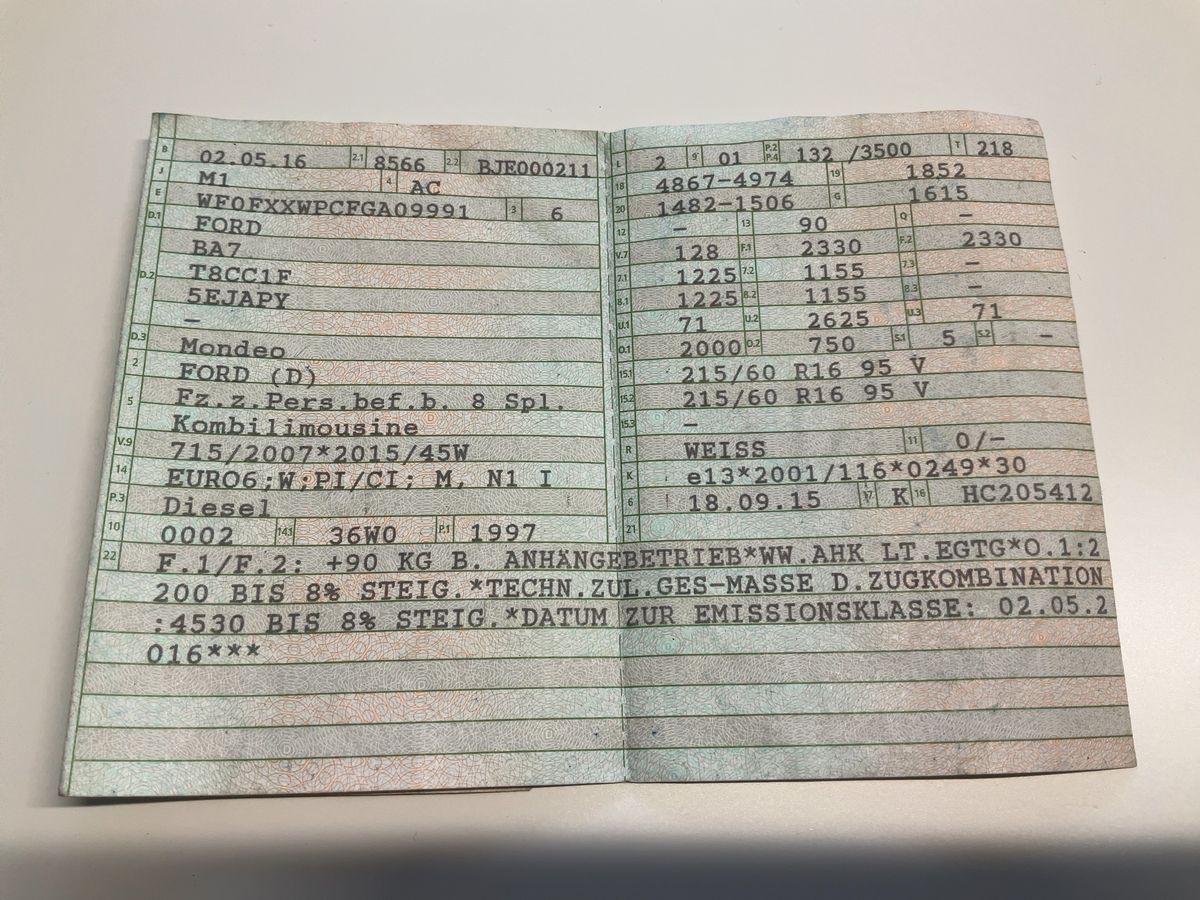 B 02.05.16 2.1 8566 2.2 BJE000211
J M1 4 AC
E WF0FXXWPCFGA09991 3 6
D.1 FORD
BA7
D.2 T8CC1F
5EJAPY
–
D.3 Mondeo
2 FORD (D)
5 Fz.z.Pers.bef.b. 8 Spl.
Kombilimousine
V.9 715/2007*2015/45W
14 EURO6;W;PI/CI; M, N1 I
P.3 Diesel
10 0002 14.1 36W0 P.1 1997
L 2 9 01 P.2 P.4 132 /3500 T 218
18 4867-4974 19 1852
20 1482-1506 G 1615
12 – 13 90 Q –
V.7 128 F.1 2330 F.2 2330
7.1 1225 7.2 1155 7.3 –
8.1 1225 8.2 1155 8.3 –
U.1 71 U.2 2625 U.3 71
O.1 2000 O.2 750 S.1 5 S.2 –
15.1 215/60 R16 95 V
15.2 215/60 R16 95 V
15.3 –
R WEISS 11 0/–
K e13*2001/116*0249*30
6 18.09.15 17 K 16 HC205412
21
22 F.1/F.2: +90 KG B. ANHÄNGEBETRIEB*WW.AHK LT.EGTG*O.1:2
200 BIS 8% STEIG.*TECHN.ZUL.GES-MASSE D.ZUGKOMBINATION
:4530 BIS 8% STEIG.*DATUM ZUR EMISSIONSKLASSE: 02.05.2
016***